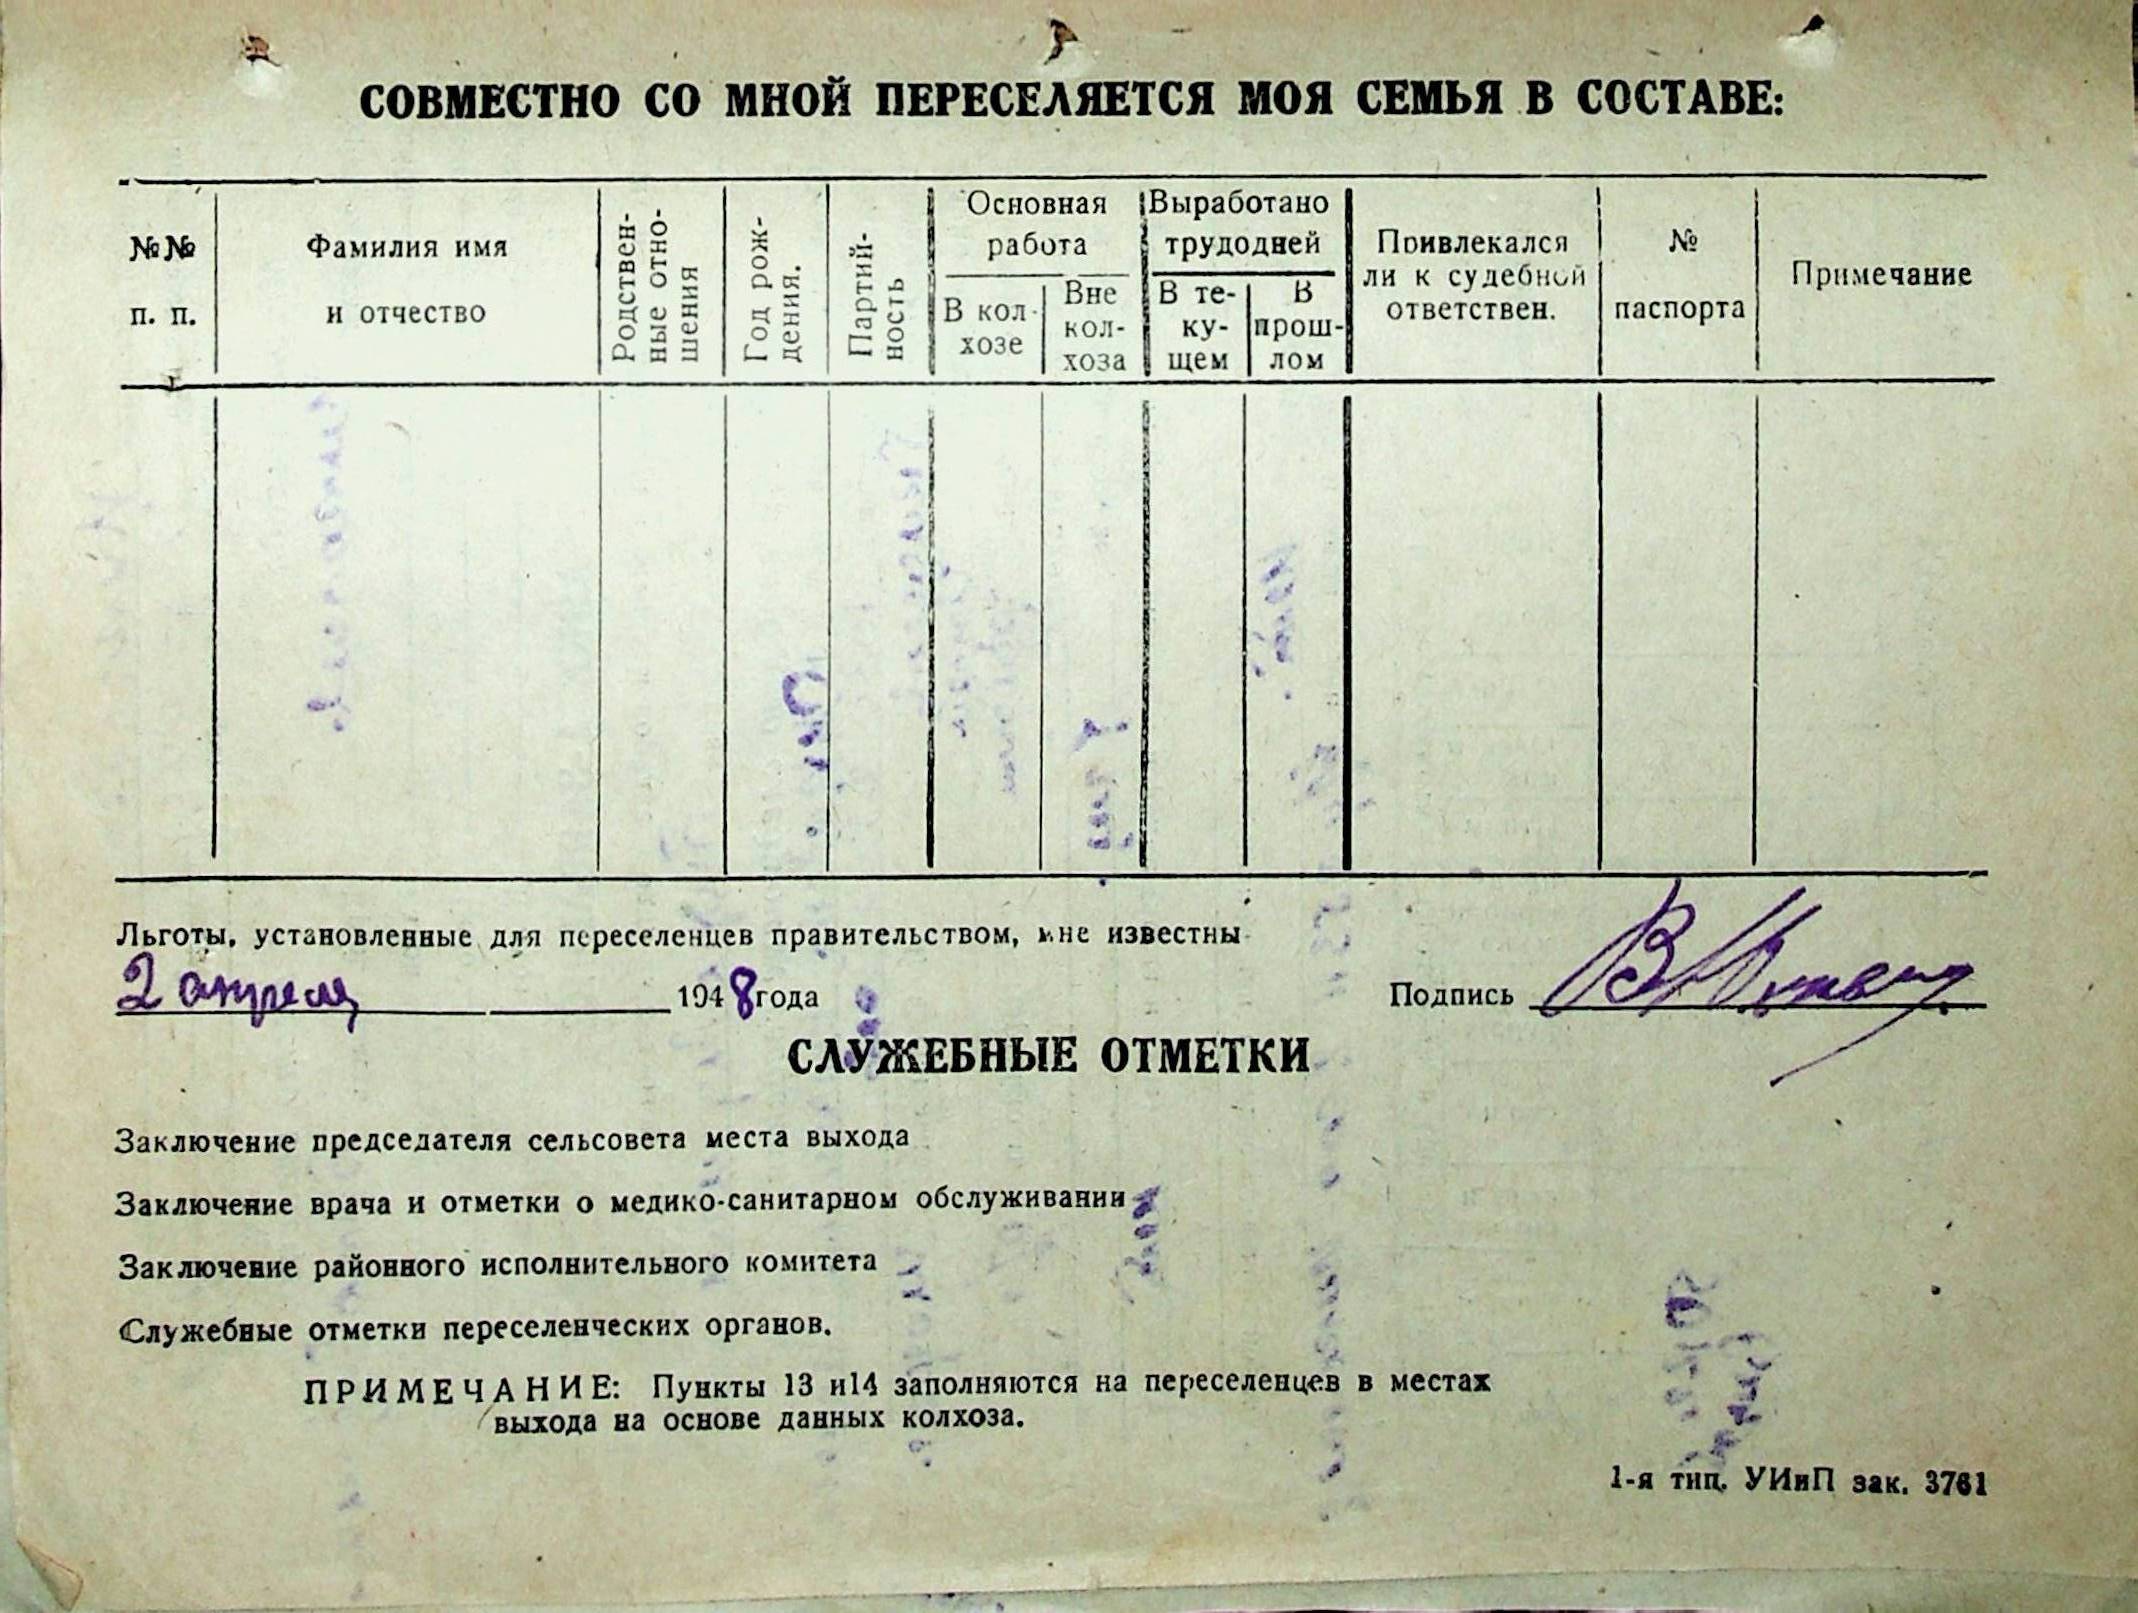 СОВМЕСТНО СО МНОЙ ПЕРЕСЕЛЯЕТСЯ МОЯ СЕМЬЯ В СОСТАВЕ:
№№ п. п.
Фамилия имя и отчество
Родствен-
ные отно-
шения
Год рож-
дения.
Партий-
ность
Основная
работа
В кол-
хозе
Вне
кол-
хоза
Выработано
трудодней
В те-
ку-
щем
В
прош-
лом
Привлекался
ли к судебной
ответствен.
№
паспорта
Примечание
Льготы, установленные для переселенцев правительством, мне известны
2 апреля 1948 года Подпись
СЛУЖЕБНЫЕ ОТМЕТКИ
Заключение председателя сельсовета места выхода
Заключение врача и отметки о медико-санитарном обслуживании
Заключение районного исполнительного комитета
Служебные отметки переселенческих органов.
ПРИМЕЧАНИЕ: Пункты 13 и14 заполняются на переселенцев в местах
выхода на основе данных колхоза.
1-я тип. УИиП зак. 3761